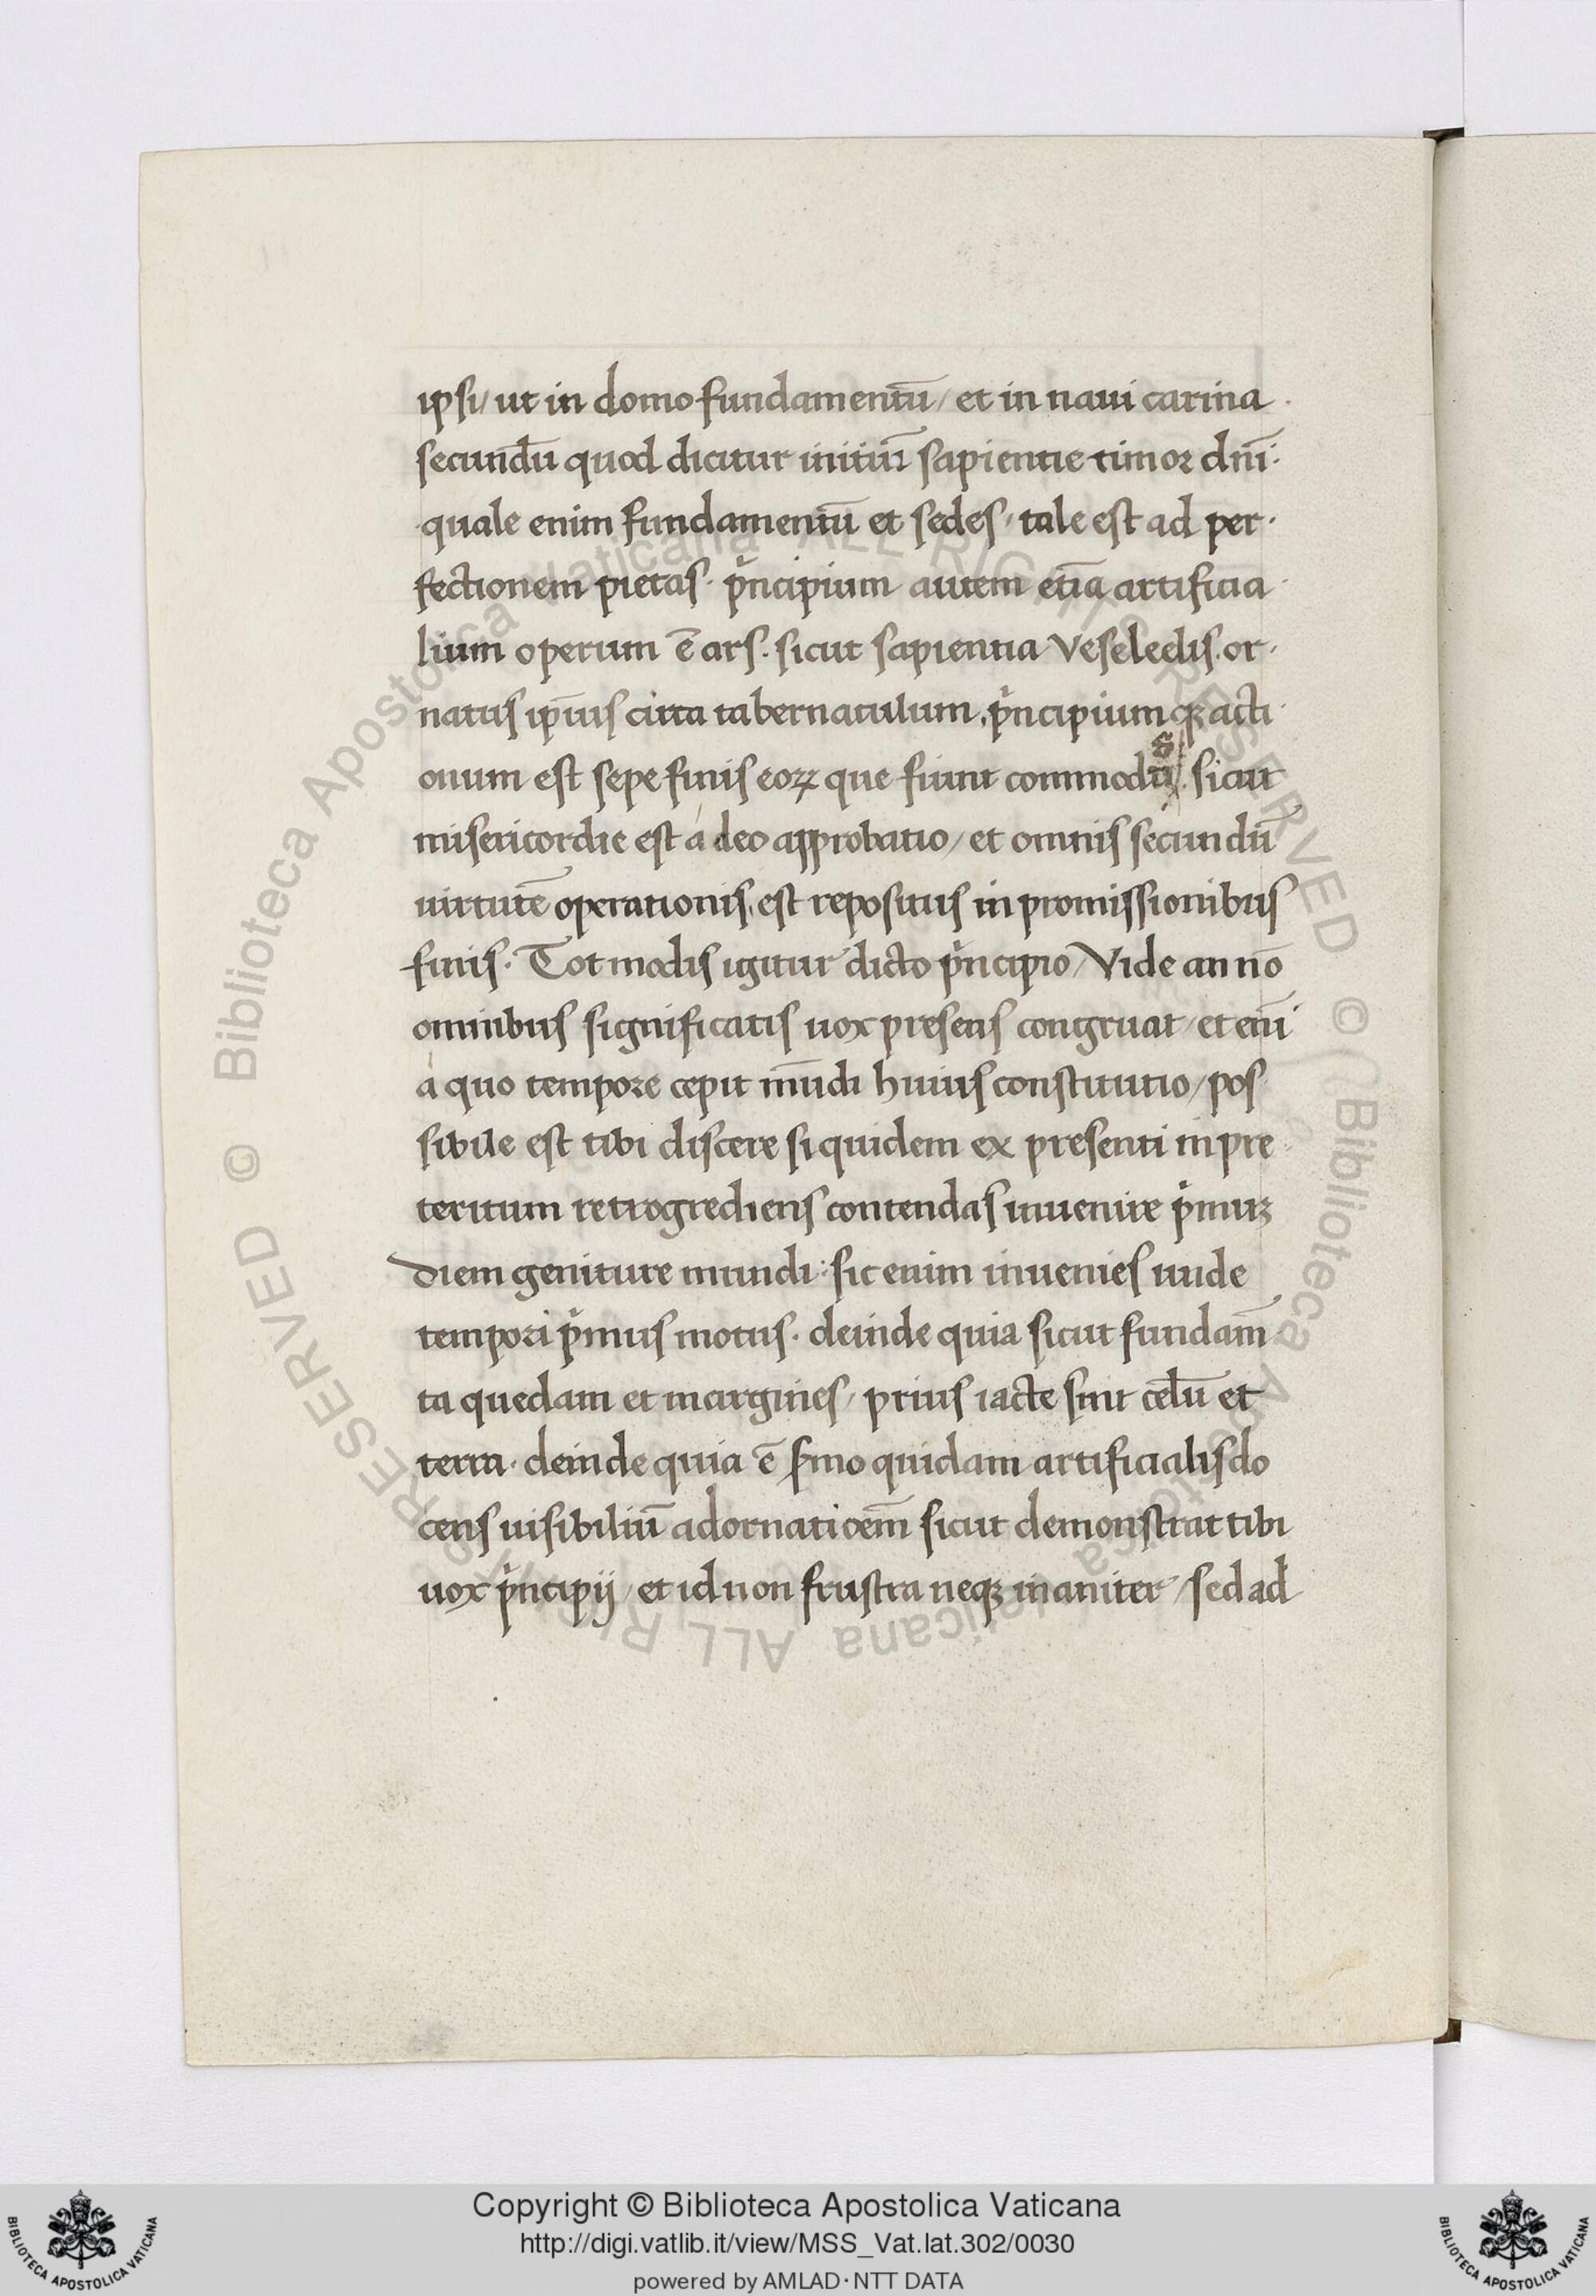 ipsi/ ut in domo fundamentū/ et in naui carina
secundū quod dicitur initiuʒ sapientie timor dnī:
quale enim fundamentū et sedes/ tale est ad per
fectionem pietas. pͥncipium autem etiā artificia
lium operum ē ars. sicut sapientia Veseledis. or
natus ipīus circa tabernaculum, pͥncipium qʒ acti
onum est sepe finis eoꝝ que fiunt commodūs/ sicut
misericordie est á deo approbatio/ et omnis secundū
uirtutē operationis, est repositus in promissionibus
finis. Tot modis igitur dicto pͥncipio/ Vide an nō
omnibus significatis uox presens congruat/ et enī
á quo tempore cepit mūdi huius constitutio/ pos
sibile est tibi discere si quidem ex presenti in pre
teritum retrogrediens contendas inuenire pͥmuʒ
diem geniture mundi: sic enim inuenies unde
tempori pͥmus motus. deinde quia sicut fundam̄
ta quedam et margines/ prius iacte sint celū et
terra. deinde quia ē s̄mo quidam artificialis do
cens uisibiliū adornatioem̄ sicut demonstrat tibi
uox pͥncipij/ et id non frustra neqʒ inaniter/ sed ad
Copyright © Biblioteca Apostolica Vaticana
http://digi.vatlib.it/view/MSS_Vat.lat.302/0030
powered by AMLAD·NTT DATA
BIBLIOTECA APOSTOLICA VATICANA
BIBLIOTECA APOSTOLICA VATICANA
© Biblioteca Apostolica Vaticana ALL RIGHTS RESERVED © Biblioteca Apostolica Vaticana ALL RIGHTS RESERVED